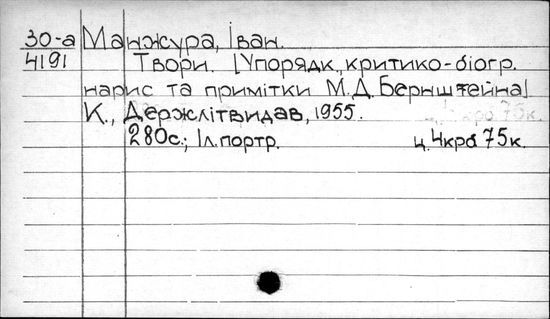 30-а Манжура, Іван.
4191 Твори. [Упорядк., критико-біогр.
нарис та примітки М.Д. Бернштейна].
К., Держлітвидав, 1955.
280с.; Іл.портр. ц. 4крб 75к.